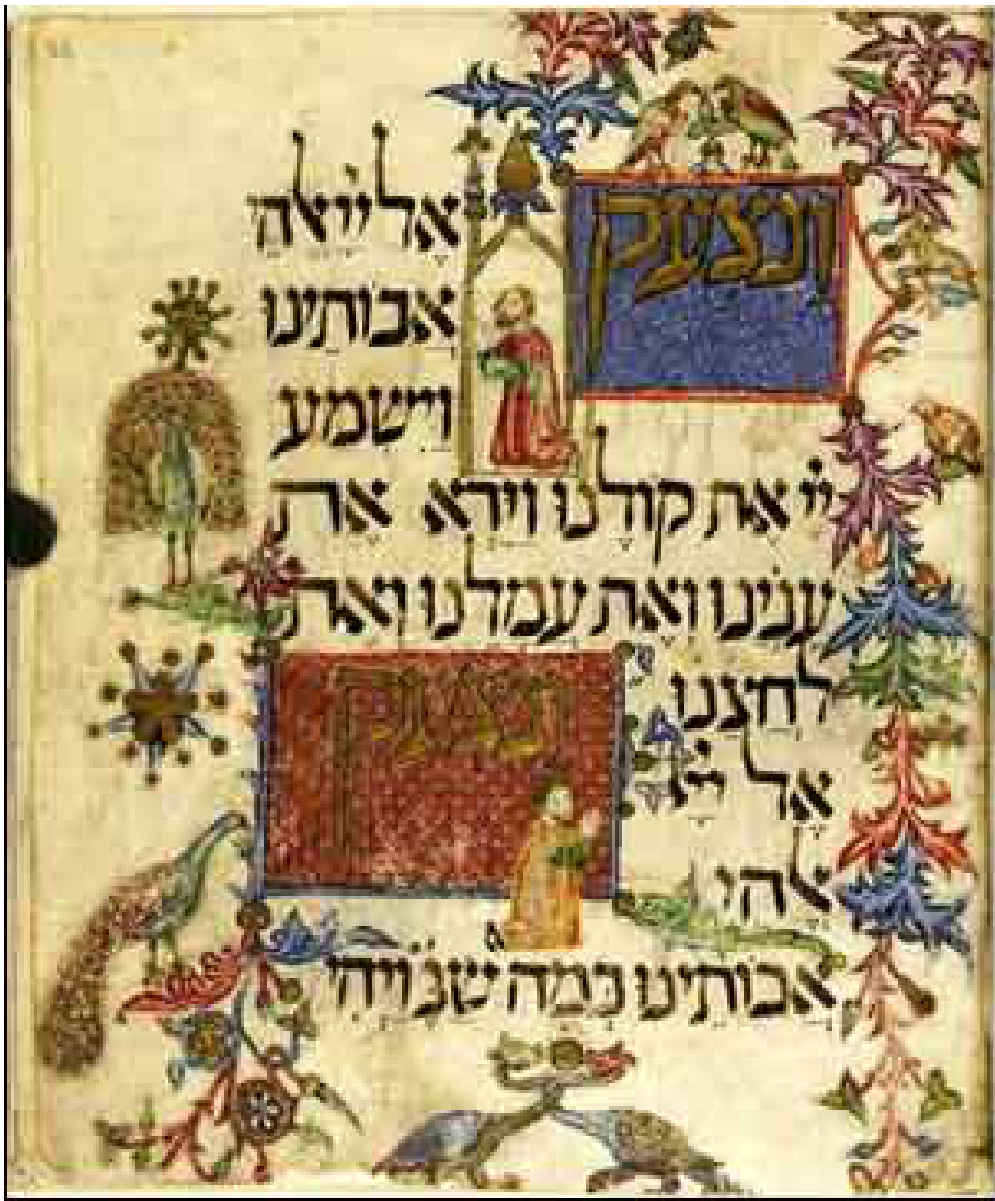 ונצעק אל יי אלהי
אבותינו
וישמע
יי את קולנו וירא את
ענינו ואת עמלנו ואת
לחצנו ונצעק
אל יי
אלהי
אבותינו כמה שנ ויהי